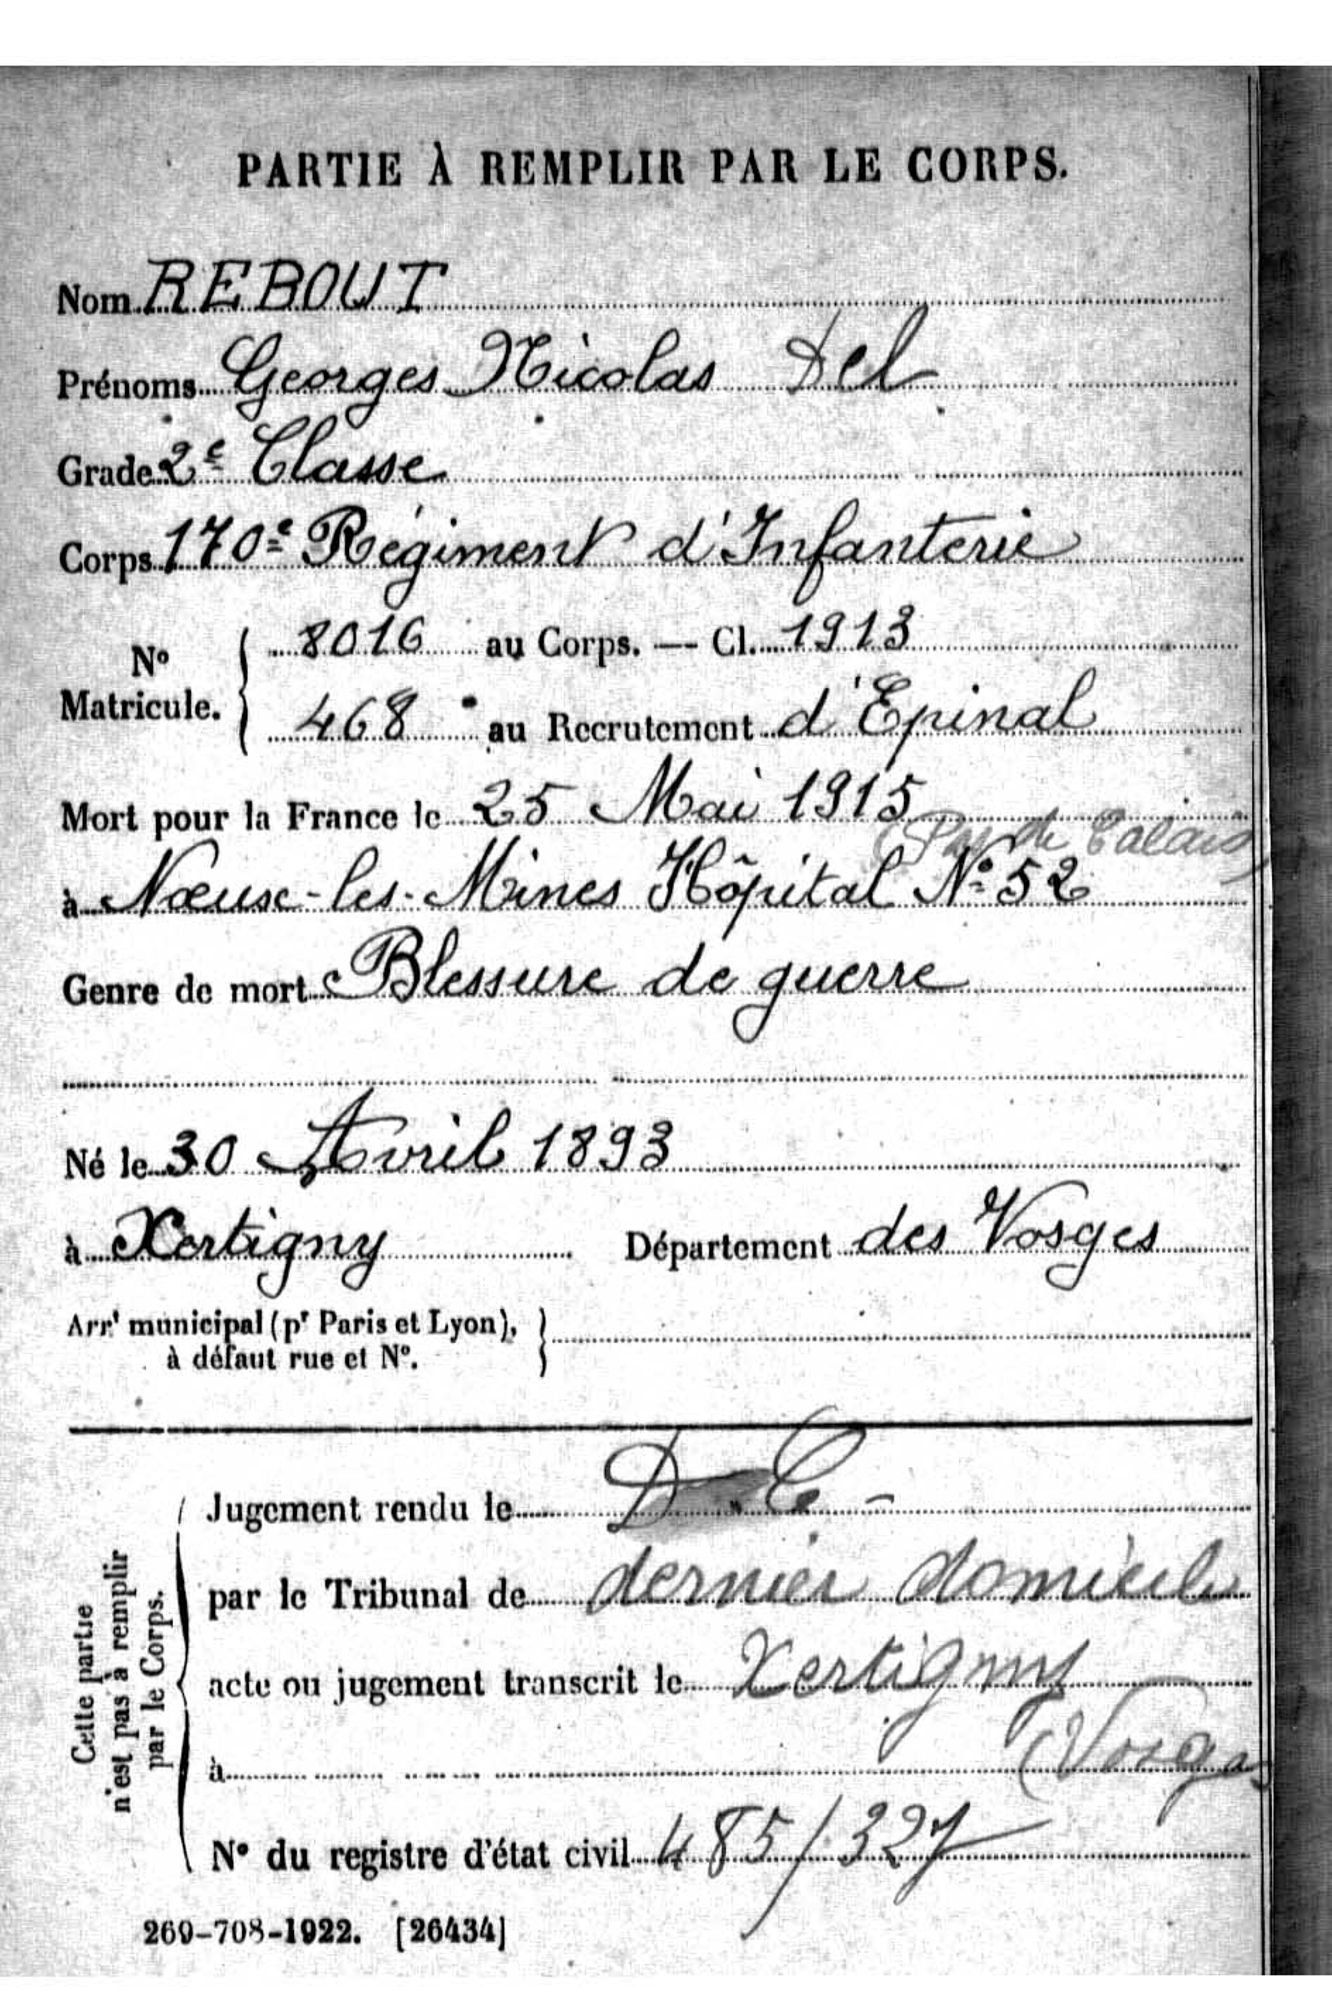 PARTIE À REMPLIR PAR LE CORPS.
Nom REBOUT
Prénoms Georges Nicolas Del
Grade 2e Classe
Corps 170e Régiment d'Infanterie
No Matricule. 8016 au Corps. — Cl. 1913
468 au Recrutement d'Epinal
Mort pour la France le 25 Mai 1915
(Pas de Calais)
à Nœuse-les-Mines Hôpital No 52
Genre de mort Blessure de guerre
Né le 30 Avril 1893
à Xertigny Département des Vosges
Arrt municipal (pr Paris et Lyon),
à défaut rue et No.
Cette partie
n'est pas à remplir
par le Corps.
Jugement rendu le D.C -
par le Tribunal de dernier domicile
acte ou jugement transcrit le Xertigny
à (Vosges
No du registre d'état civil 485/327
269-708-1922. [26434]